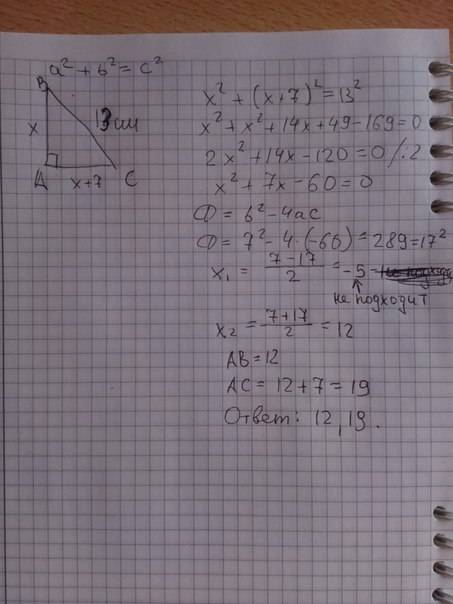 a² + b² = c²
B
x
13 см
A
x+7
C
x² + (x+7)² = 13²
x² + x² + 14x + 49 - 169 = 0
2x² + 14x - 120 = 0 /:2
x² + 7x - 60 = 0
D = b² - 4ac
D = 7² - 4·(-60) = 289 = 17²
x₁ = (7-17)/2 = -5 -
не подходит
x₂ = (7+17)/2 = 12
AB = 12
AC = 12 + 7 = 19
Ответ: 12, 19.